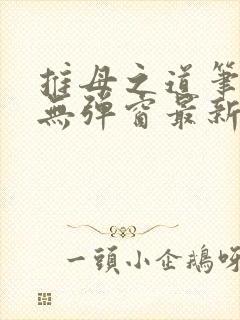 推母之道筆
無彈窗最新
一頭小企鵝呀